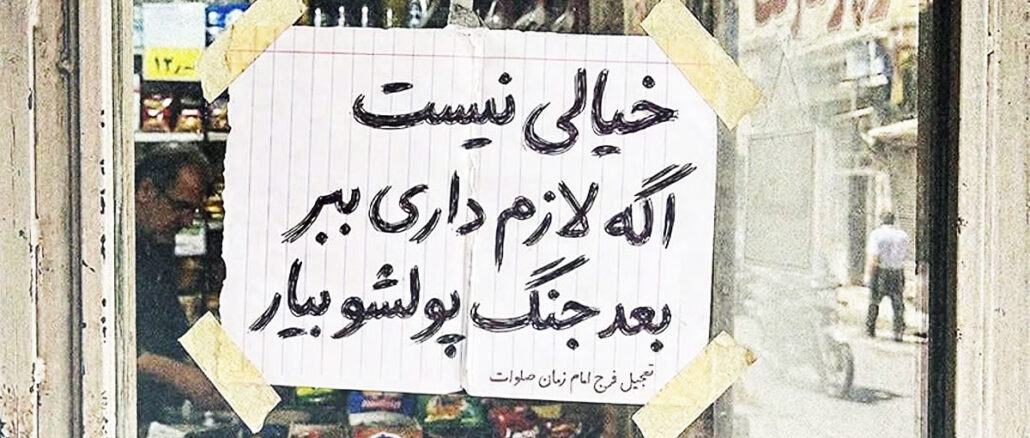 خیالی نیست
اگه لازم داری ببر
بعد جنگ پولشو بیار
تعجیل فرج امام زمان صلوات